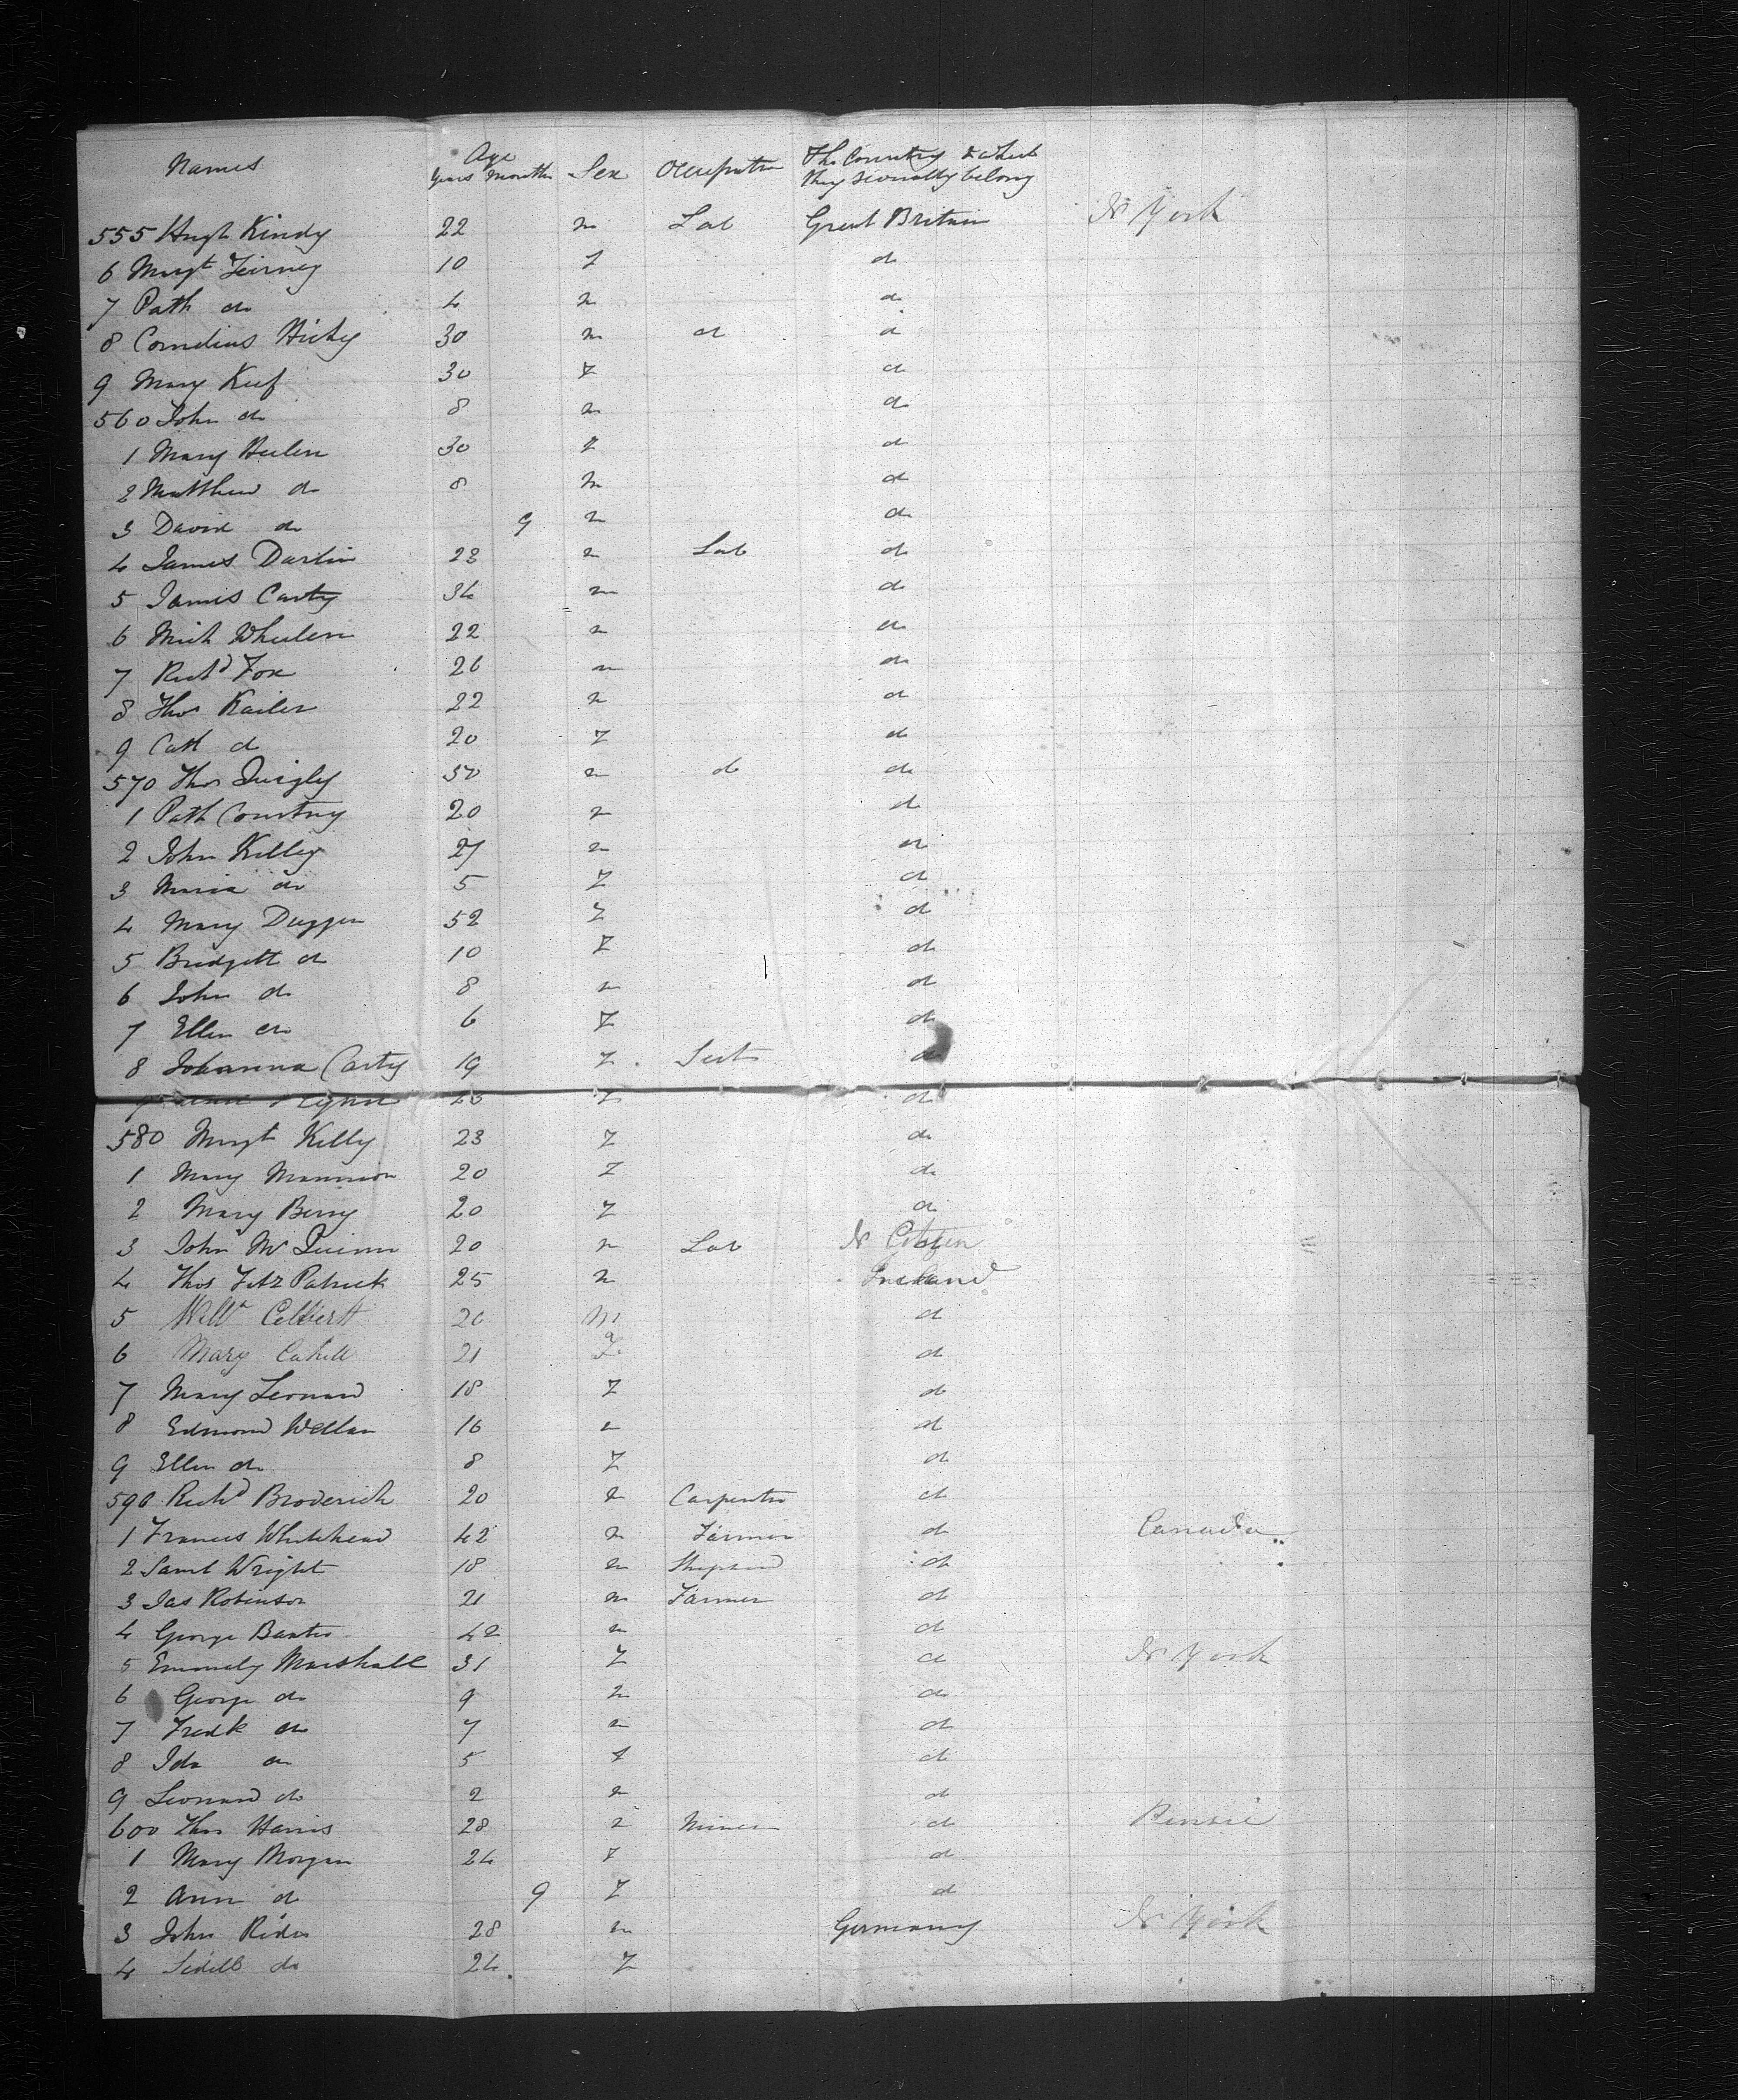 Names Age Years Months Sex Occupation The Country to which they severally belong
555 Hugh Kindy 22 m Lab Great Britain N York
6 Margt Teirney 10 F do
7 Patk do 4 m do
8 Cornelius Hicky 30 m do do
9 Mary Keef 30 F do
560 John do 8 m do
1 Mary Heelen 30 F do
2 Matthew do 8 m do
3 David do 9 m do
4 James Darlin 22 m Lab do
5 James Carty 34 m do
6 Mich Wheelen 22 m do
7 Richd Fox 26 m do
8 Thos Kailer 22 m do
9 Cath do 20 F do
570 Thos Quigly 50 m do do
1 Patk Courtny 20 m do
2 John Killey 27 m do
3 Maria do 5 F do
4 Mary Duggen 52 F do
5 Bridgett do 10 F do
6 John do 8 m do
7 Ellen do 6 F do
8 Johanna Carty 19 F Sert do
9 F do
580 Margt Kelly 23 F do
1 Mary Mannion 20 F do
2 Mary Berry 20 F do
3 John McQuinn 20 m Lab N Citizen
4 Thos FitzPatrick 25 m Ireland
5 Willm 20 m do
6 Mary Cahill 21 F do
7 Mary Leonard 18 F do
8 Edmond Wellan 16 m do
9 Ellen do 8 F do
590 Richd Broderick 20 m Carpenter do
1 Frances Whitehead 42 m Farmer do Canada
2 Saml Wright 18 m Shepherd do
3 Jas Robinson 21 m Farmer do
4 George Baxter 42 m do
5 Emmely Marshall 31 F do N York
6 George do 9 m do
7 Fredk do 7 m do
8 Ida do 5 F do
9 Leonard do 2 m do
600 Thos Harris 28 m Miner do
1 Mary Morgan 24 F do
2 Ann do 9 F do
3 John Rider 28 m Germany N York
4 do 24 F